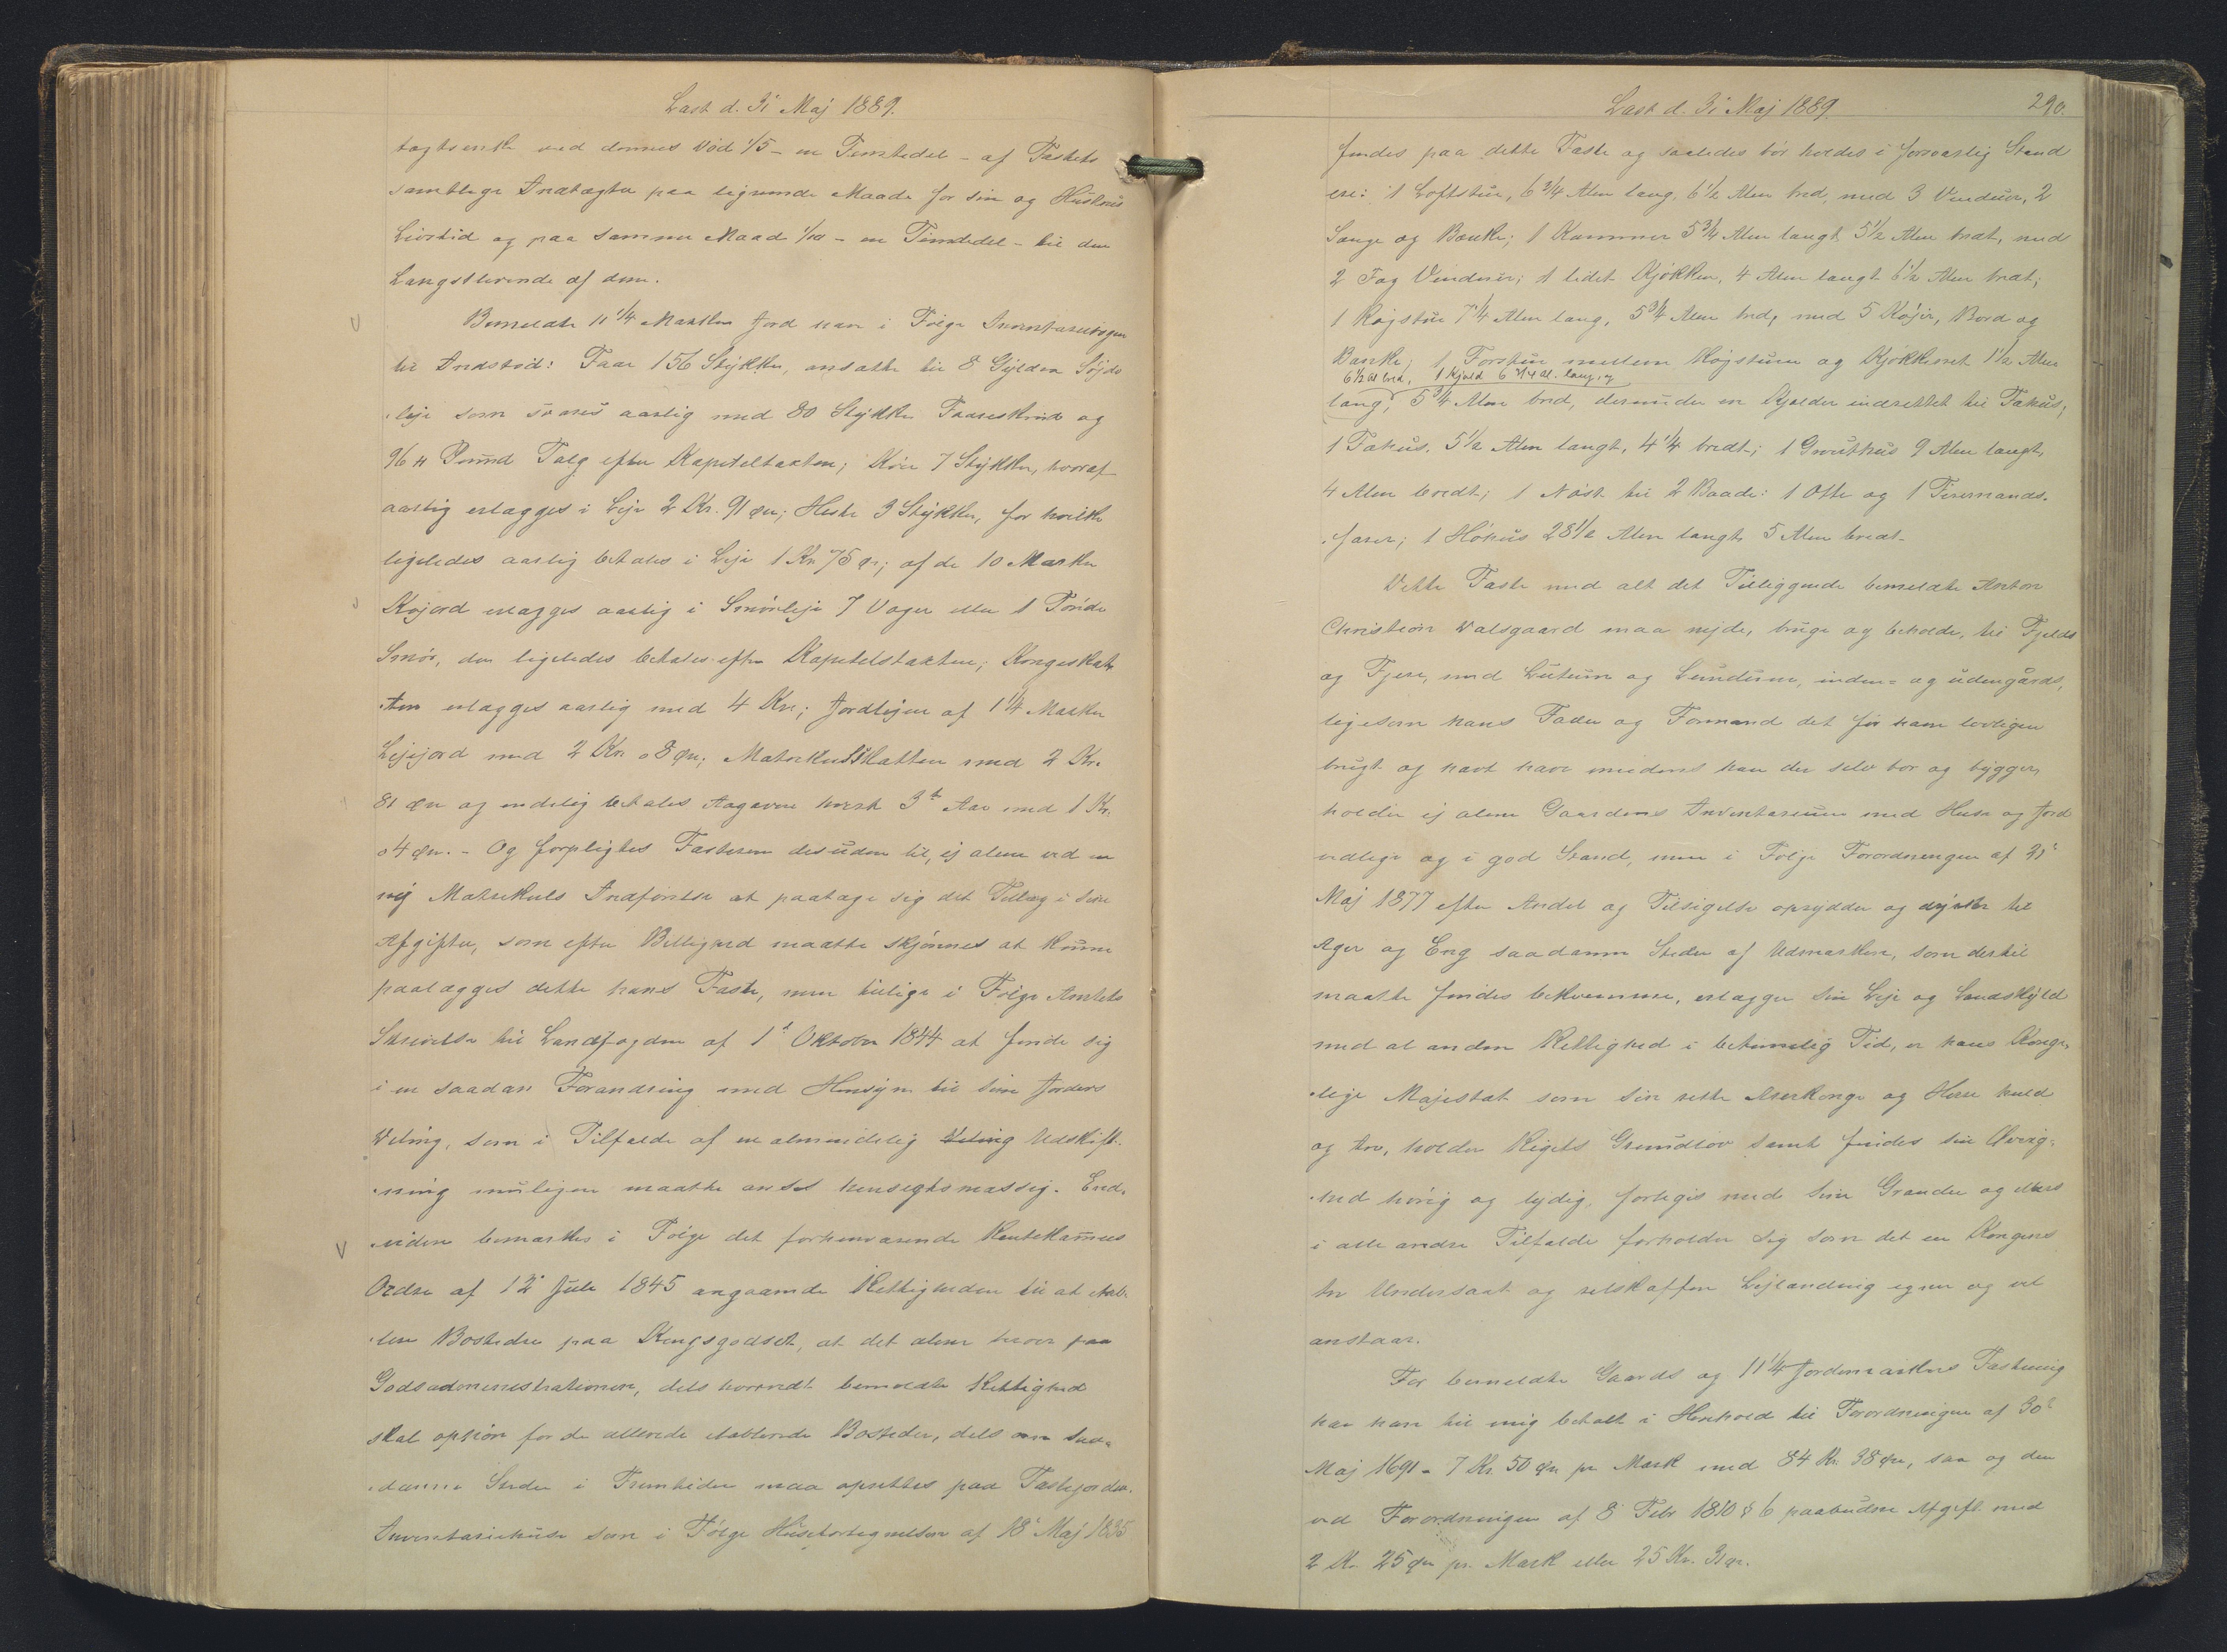 Læst d. 31' Maj 1889.
tægtsenke ved dennes Død 1/5 - en Femtedel - af Fæstets
samtlige Indtægter paa lignende Maade for sin og Hustrus
Livstid og paa samme Maade 1/10 - en Tiendedel - til den
Længstlevende af dem.
Bemeldte 11 1/4 Marker Jord har i Følge Inventariebogen
til Indstød: Faar 156 Stykker, ansatte til 8 Gylden Søjde
leje som svares aarlig med 80 Stykker Faareskind og
96 Pund Talg efter Kapitelstaxten; Køer 7 Stykker, hvoraf
aarlig erlægges i Leje 2 Kr. 91 Øre; Heste 3 Stykker, for hvilke
ligeledes aarlig betales i Leje 1 Kr 75 Ør; af de 10 Marker
Kojord erlægges aarlig i Smørleje 7 Voger eller 1 Tønde
Smør, der ligeledes betales efter Kapitelstaxten; Kongeskat
ten erlægges aarlig med 4 Kr.; Jordlejen af 1 1/4 Marker
Lejejord med 2 Kr. 08 Øre; Matrikulskatten med 2 Kr.
81 Øre og endelig betales Aagaven hvert 3die Aar med 1 Kr.
04 Øre. - Og forpligtes Fæsteren desuden til, ej alene ved en
ny Matrikuls Indførelse at paatage sig det Tillæg i sine
Afgifter, som efter Billighed maatte skjønnes at kunne
paalægges dette hans Fæste, men tillige i Følge Amtets
Skrivelse til Landfogden af 1' Oktober 1844 at finde sig
i en saadan Forandring med Hensyn til sine Jorders
Deling, som i Tilfælde af en almindelig Deling Udskift-
ning muligen maatte anses hensigtsmæssig. End-
videre bemærkes i Følge det forhenværende Rentekamers
Ordre af 12' Juli 1845 angaaende Rettigheden til at etab-
lere Bosteder paa Kongsgodset, at det alene beror paa
Godsadministrationen, dels hvorvidt bemeldte Rettighed
skal ophøre for de allerede etablerede Bosteder, dels om saa-
danne Steder i Fremtiden maa oprettes paa Fæstejorden.
Inventariehuse som i Følge Husefortegnelsen af 18' Maj 1835
Læst d. 31' Maj 1889
290.
findes paa dette Fæste og saaledes bør holdes i forsvarlig Stand
ere: 1 Loftstue, 6 3/4 Alen lang, 6 1/2 Alen bred, med 3 Vinduer, 2
Senge og Bænke; 1 Kammer 5 3/4 Alen langt 5 1/2 Alen bredt, med
2 Fag Vinduer; 1 lidet Kjøkken, 4 Alen langt 6 1/2 Alen bredt;
1 Røgstue 7 1/4 Alen lang, 5 3/4 Alen bred, med 5 Køjer, Bord og
Bænke; 1 Forstue mellem Røgstuen og Kjøkkenet 1 1/2 Alen
6 1/2 Al bred, 1 Hjald 6 3/4 Al. lang, og
lang, 5 3/4 Alen bred, derunder en Kjælder indrettet til Fæhus;
1 Fæhus, 5 1/2 Alen langt, 4 1/4 bredt; 1 Grouthus 9 Alen langt,
4 Alen bredt; 1 Nøst til 2 Baade: 1 Otte og 1 Firemands-
farer; 1 Høhus 28 1/2 Alen langt 5 Alen bredt.
Dette Fæste med alt det Tilliggende bemeldte Anton
Christian Dalsgaard maa nyde, bruge og beholde, til Fjelds
og Fjere, med Luttum og Lundum, inden- og udengårds,
ligesom hans Fader og Formand det før ham lovligen
brugt og havt have imedens han der selv bor og bygger,
holder ej alene Gaardens Inventarium med Huse og Jord
vedlige og i god Stand, men i Følge Forordningen af 21'
Maj 1877 efter Andel og Tilsigelse oprydder og dyrker til
Ager og Eng saadanne Steder af Udmarken, som dertil
maatte findes bekvemme, erlægger sin Leje og Landskyld
med al anden Rettighed i betimelig Tid, er hans Konge-
lige Majestæt som sin rette Arvekonge og Herre huld
og tro, holder Rigets Grundlov samt findes sin Øvrig-
hed hørig og lydig, forliges med sine Grander og ellers
i alle andre Tilfælde forholder sig som det en Kongens
tro Undersaat og retskaffen Lejlænding egner og vel
anstaar.
For bemeldte Gaards og 11 1/4 Jordemarkers Fæstning
har han til mig betalt i Henhold til Forordningen af 30'
Maj 1691 - 7 Kr. 50 Øre pr Mark med 84 Kr. 38 Øre, saa og den
ved Forordningen af 8' Febr 1810 § 6 paabudne Afgift med
2 Kr. 25 Øre pr. Mark eller 25 Kr. 31 Ør.